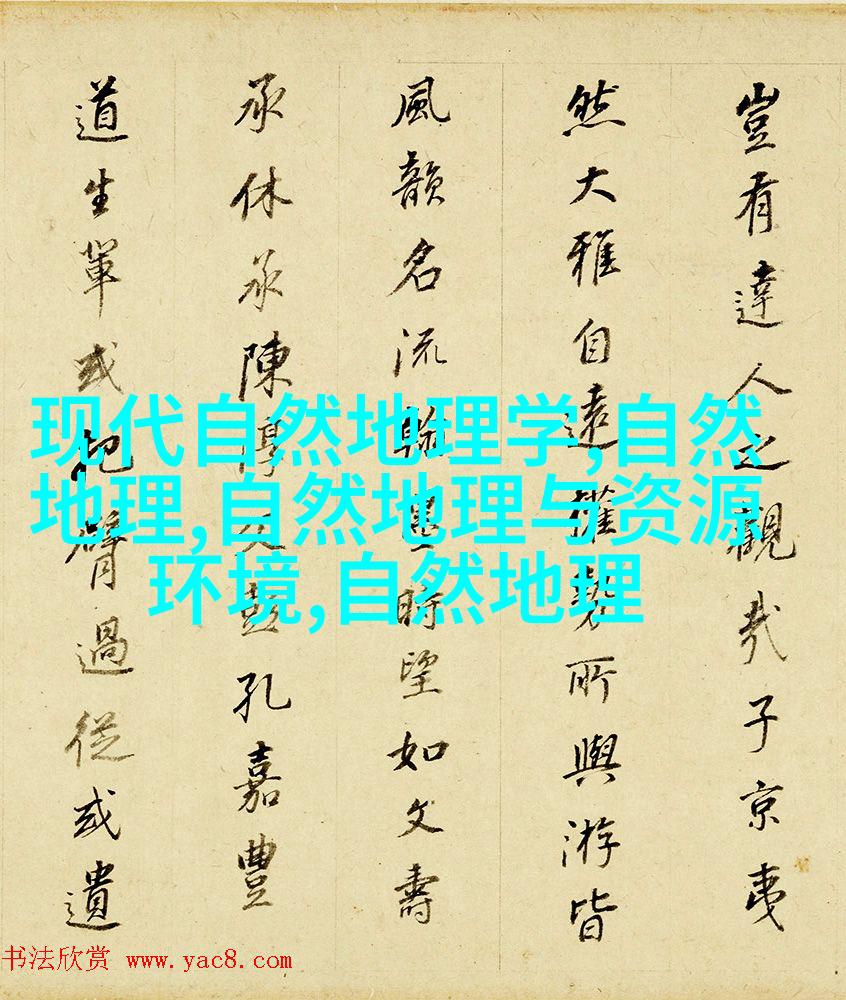 豈有達人之觀哉子京夷
然大雅自遠權勢所與游皆
風韻名流翰墨時望如文壽
承休承陳淳父彭孔嘉豐
道生軰或把臂過從或遺
现代自然地理学,自然
地理,自然地理与资源
环境,自然地理
书法欣赏 www.yac8.com